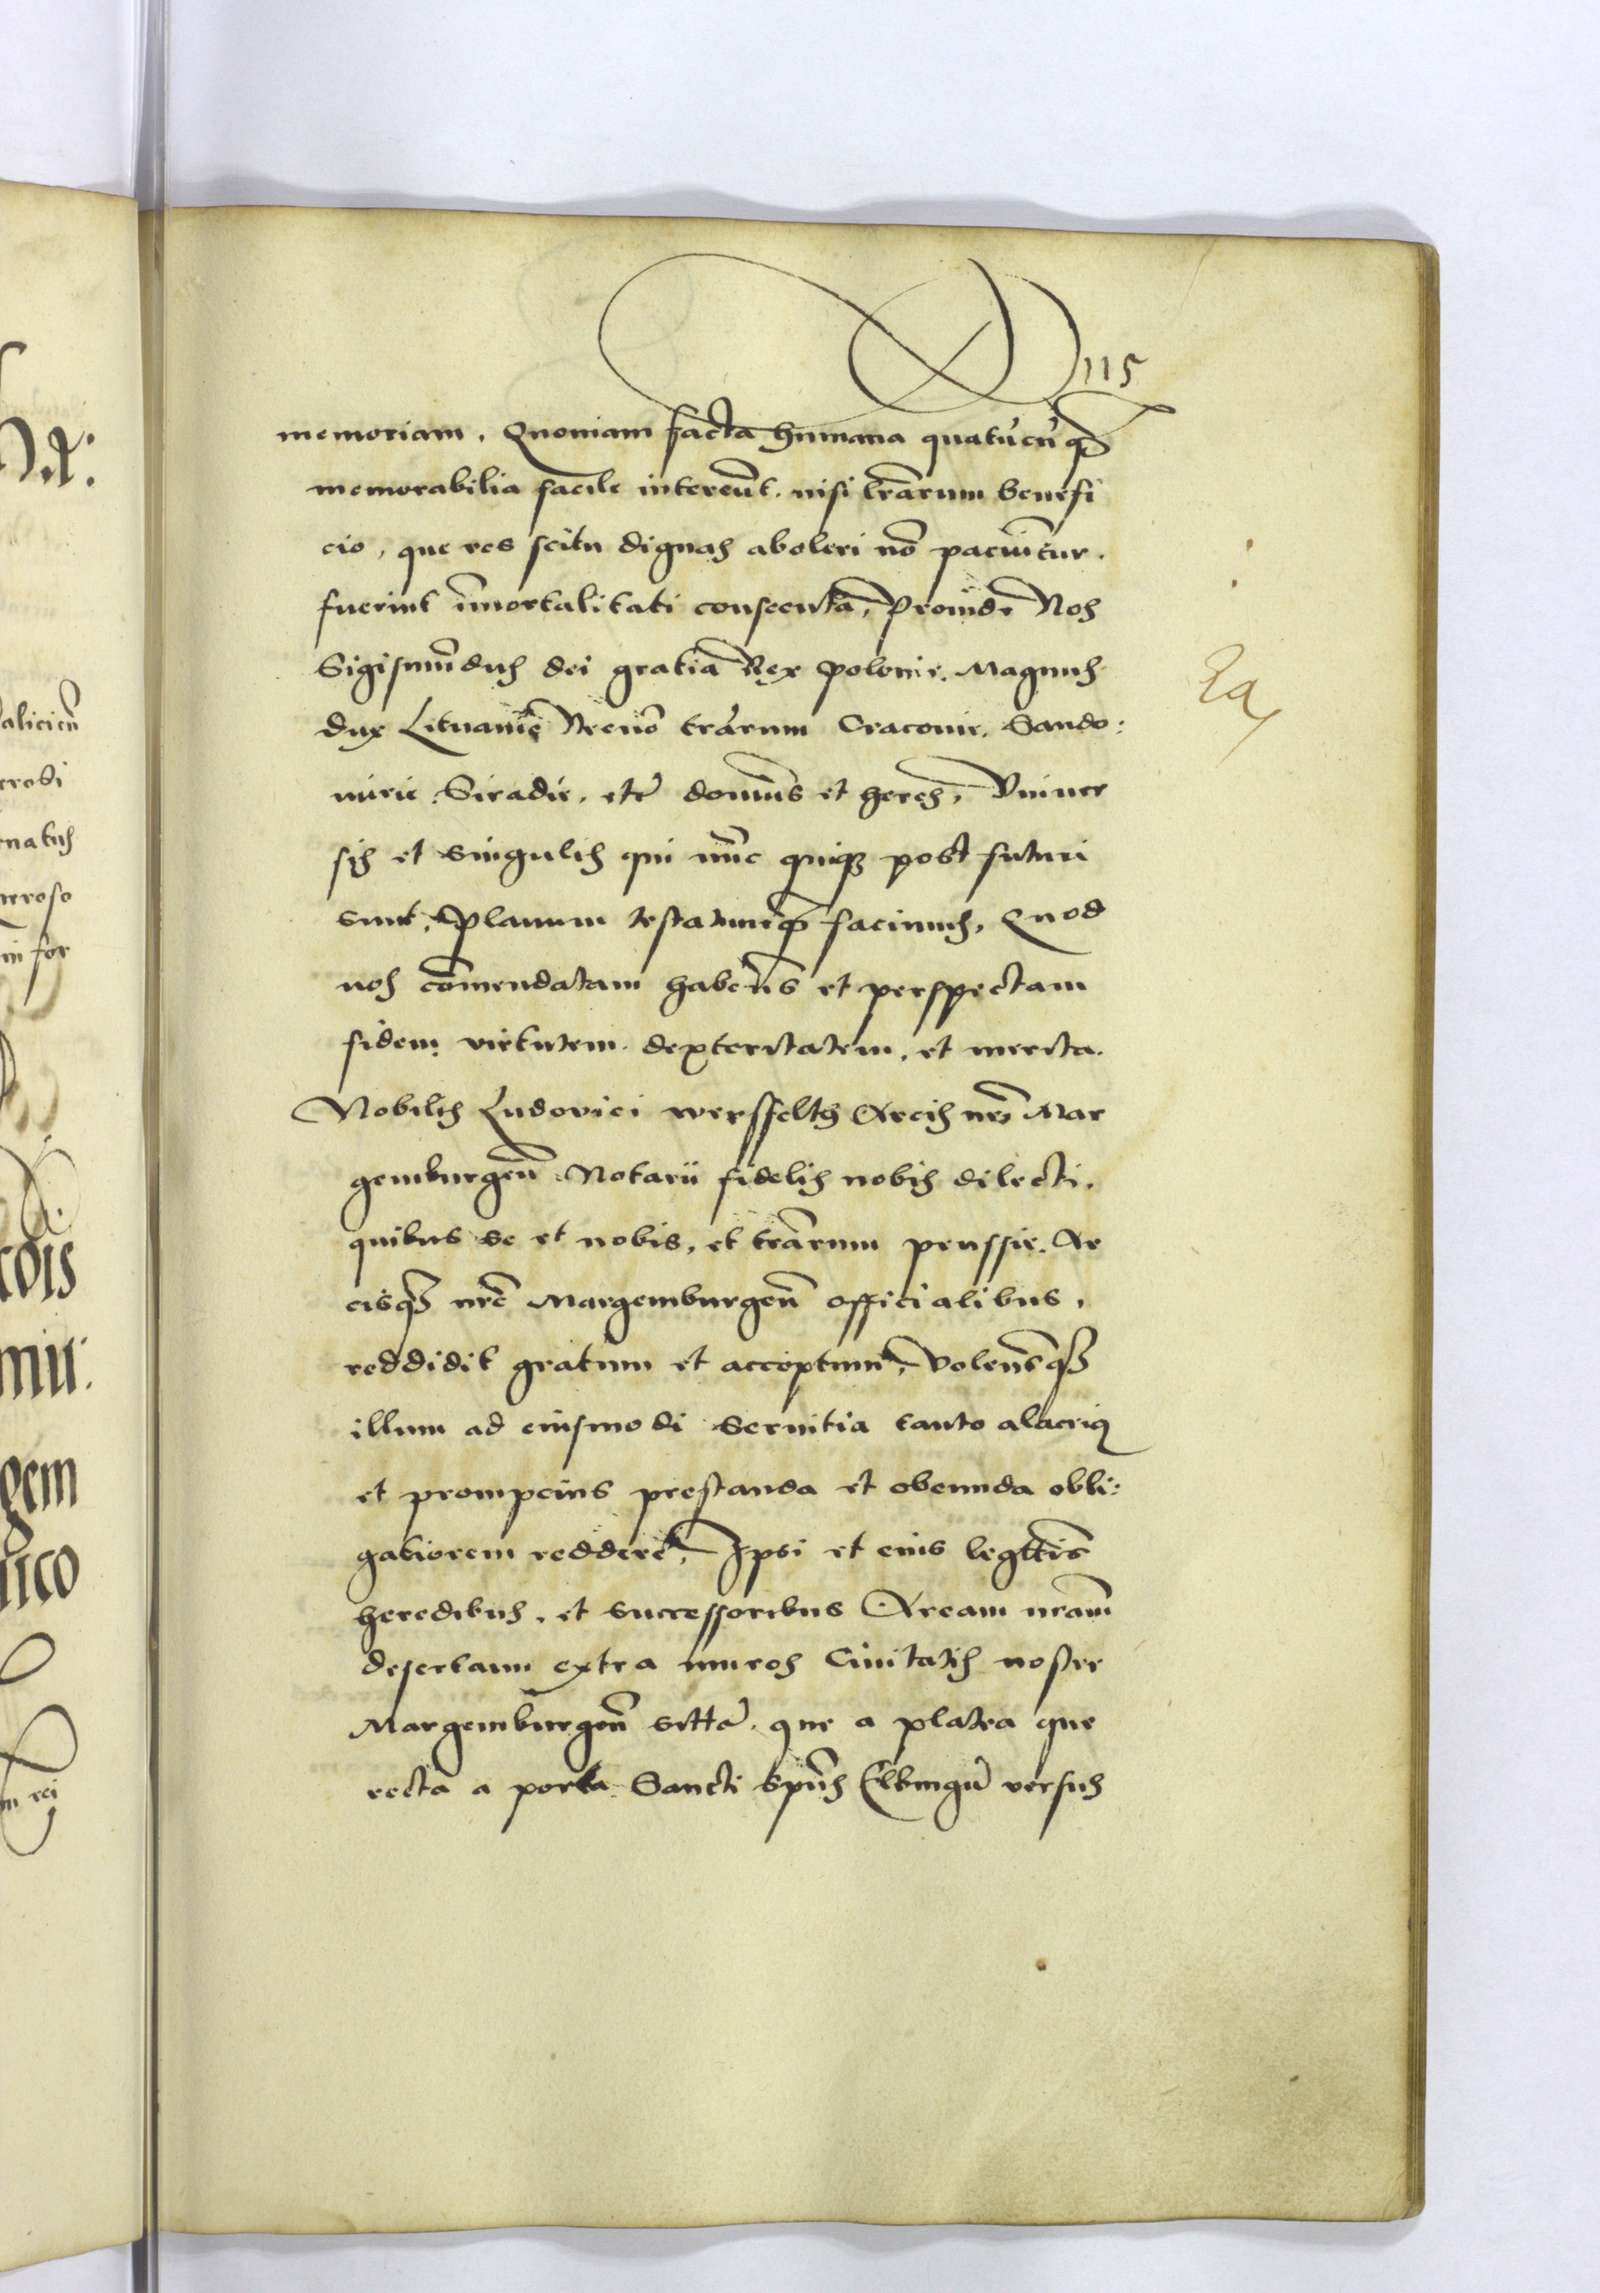 115
memoriam. Quoniam facta humana quatūcūq3
memorabilia facile intereūt. nisi lr̃arum benefi
cio, que res scitu dignas aboleri nō paciūtur.
fuerint ĩmortalitati consecuta, Proinde Nos
Sigismūdus dei gratia Rex Polonie. Magnus
dux Lituanie Necnō tr̃arum Cracouie. Sando:
mirie. Siradie. etc̃ domin9 et heres, Vniuer
sis et singulis qui nūc quiq3 post futuri
sunt, Planum testatumq3 facimus, Quod
nos cōmendatam haben̄s et perspectam
fidem. virtutem. dexteritatem, et merita.
Nobilis Ludovici werssfelth Arcis nr̃e Mar
gemburgeñ Notarii fidelis nobis dilecti.
quibus se et nobis, et tr̃arum prussie. Ar
cisq3 nr̃e Margemburgeñ officialibus,
reddidit gratum et acceptum, Volen̄sq3
illum ad eiusmodi seruitia tanto alacri9
et prompcius prestanda et obeunda obli:
gatiorem reddere, Ipsi et eius legttĩs
heredibus, et successoribus Aream nr̃am
desertam extra muros Ciuitatis nostre
Margemburgeñ sittã. que a platea que
recta a porta Sancti Spũs Elbingũ versus